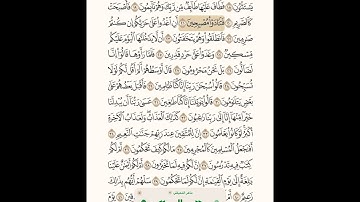 يَسْتَثْنُونَ ١٨ فَطَافَ عَلَيْهَا طَآئِفٌ مِّن رَّبِّكَ وَهُمْ نَآئِمُونَ ١٩ فَأَصْبَحَتْ
كَٱلصَّرِيمِ ٢٠ فَتَنَادَوْا۟ مُصْبِحِينَ ٢١ أَنِ ٱغْدُوا۟ عَلَىٰ حَرْثِكُمْ إِن كُنتُمْ
صَٰرِمِينَ ٢٢ فَٱنطَلَقُوا۟ وَهُمْ يَتَخَٰفَتُونَ ٢٣ أَن لَّا يَدْخُلَنَّهَا ٱلْيَوْمَ عَلَيْكُم
مِّسْكِينٌ ٢٤ وَغَدَوْا۟ عَلَىٰ حَرْدٍ قَٰدِرِينَ ٢٥ فَلَمَّا رَأَوْهَا قَالُوٓا۟ إِنَّا
لَضَآلُّونَ ٢٦ بَلْ نَحْنُ مَحْرُومُونَ ٢٧ قَالَ أَوْسَطُهُمْ أَلَمْ أَقُل لَّكُمْ لَوْلَا
تُسَبِّحُونَ ٢٨ قَالُوا۟ سُبْحَٰنَ رَبِّنَآ إِنَّا كُنَّا ظَٰلِمِينَ ٢٩ فَأَقْبَلَ بَعْضُهُمْ عَلَىٰ
بَعْضٍ يَتَلَٰوَمُونَ ٣٠ قَالُوا۟ يَٰوَيْلَنَآ إِنَّا كُنَّا طَٰغِينَ ٣١ عَسَىٰ رَبُّنَآ أَن يُبْدِلَنَا
خَيْرًا مِّنْهَآ إِنَّآ إِلَىٰ رَبِّنَا رَٰغِبُونَ ٣٢ كَذَٰلِكَ ٱلْعَذَابُ وَلَعَذَابُ ٱلْءَاخِرَةِ
أَكْبَرُ لَوْ كَانُوا۟ يَعْلَمُونَ ٣٣ إِنَّ لِلْمُتَّقِينَ عِندَ رَبِّهِمْ جَنَّٰتِ ٱلنَّعِيمِ ٣٤
أَفَنَجْعَلُ ٱلْمُسْلِمِينَ كَٱلْمُجْرِمِينَ ٣٥ مَا لَكُمْ كَيْفَ تَحْكُمُونَ ٣٦ أَمْ لَكُمْ
كِتَٰبٌ فِيهِ تَدْرُسُونَ ٣٧ إِنَّ لَكُمْ فِيهِ لَمَا تَخَيَّرُونَ ٣٨ أَمْ لَكُمْ أَيْمَٰنٌ عَلَيْنَا
بَٰلِغَةٌ إِلَىٰ يَوْمِ ٱلْقِيَٰمَةِ إِنَّ لَكُمْ لَمَا تَحْكُمُونَ ٣٩ سَلْهُمْ أَيُّهُم بِذَٰلِكَ
زَعِيمٌ ٤٠